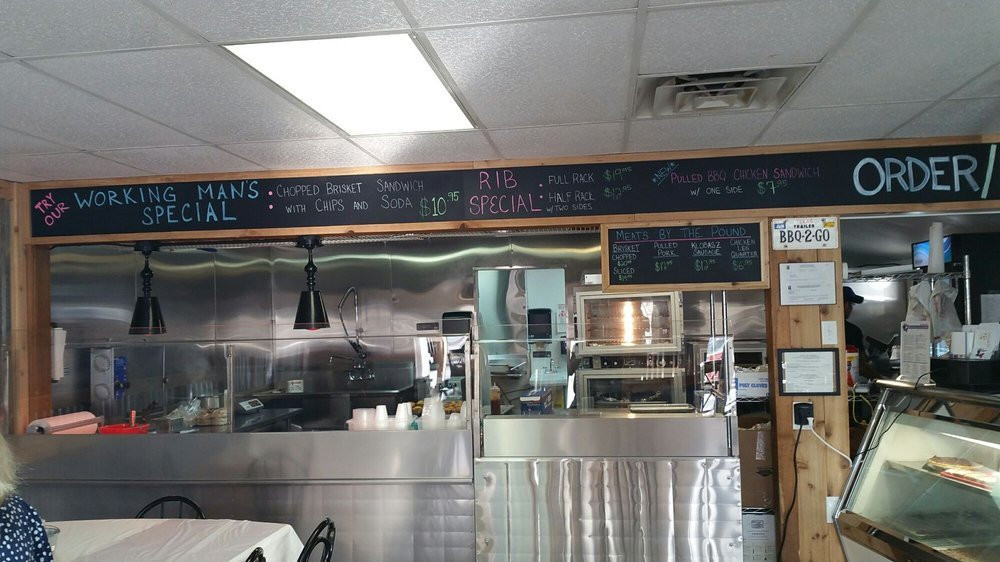 TRY
OUR
WORKING MAN'S
SPECIAL
• CHOPPED BRISKET SANDWICH
WITH CHIPS AND SODA $10.95
RIB
SPECIAL
• FULL RACK $19.95
• HALF RACK $12.95
W/TWO SIDES
NEW
PULLED BBQ CHICKEN SANDWICH
W/ ONE SIDE $7.95
ORDER/
MEATS BY THE POUND
BRISKET
CHOPPED
SLICED
PULLED
PORK
KLOBASZ
SAUSAGE
CHICKEN
LEG
QUARTER
TRAILER
BBQ-2-GO
POLY GLOVES